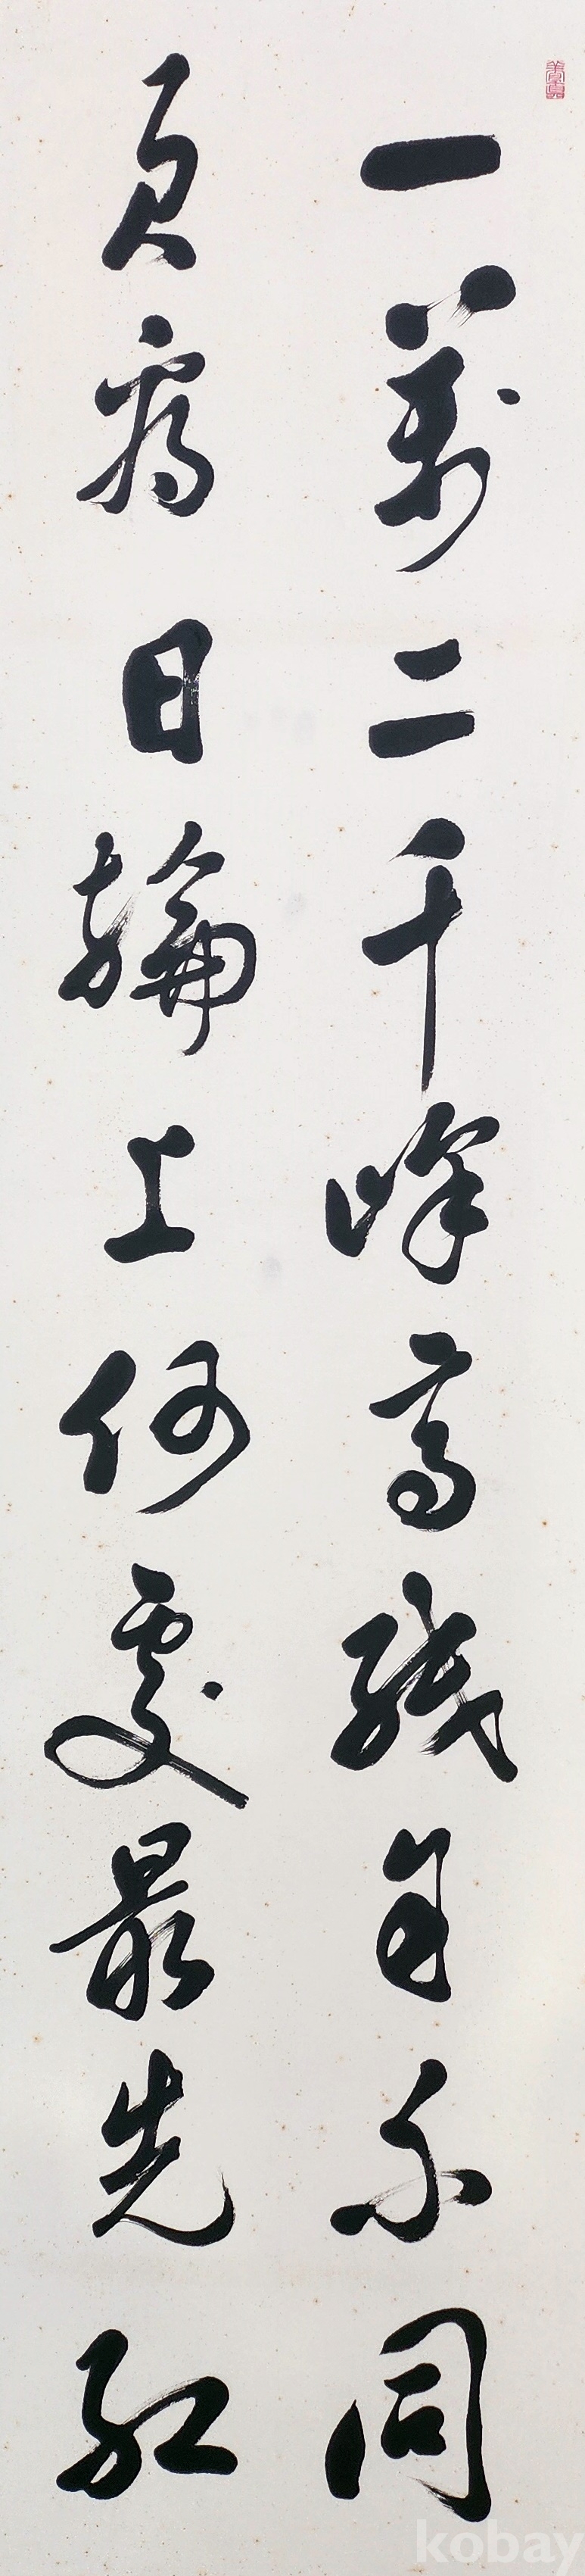 一萬二千峰高低自不同
君看日輪上何處最先紅
kobay